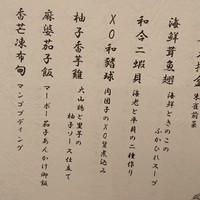 海鮮茸魚翅
海鮮ときのこのふかひれスープ
和今二蝦貝
海老と平貝の二種作り
XO和豬球
肉団子のXO醤煮込み
柚子香芋雞
大山鶏と里芋の柚子ソース仕立て
麻婆茄子飯
マーボー茄子あんかけ御飯
香芒凍布甸
マンゴプディング